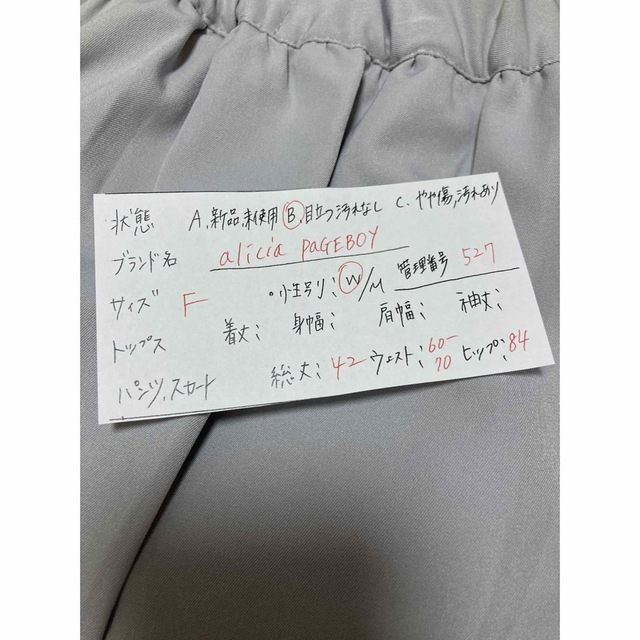 状態 A、新品、未使用 B、目立つ汚れなし C、やや傷、汚れあり
ブランド名 alicia PAGEBOY
サイズ F 性別; W/M 管理番号 527
トップス 着丈; 身幅; 肩幅; 袖丈;
パンツ、スカート 総丈; 42 ウェスト; 60-70 ヒップ; 84